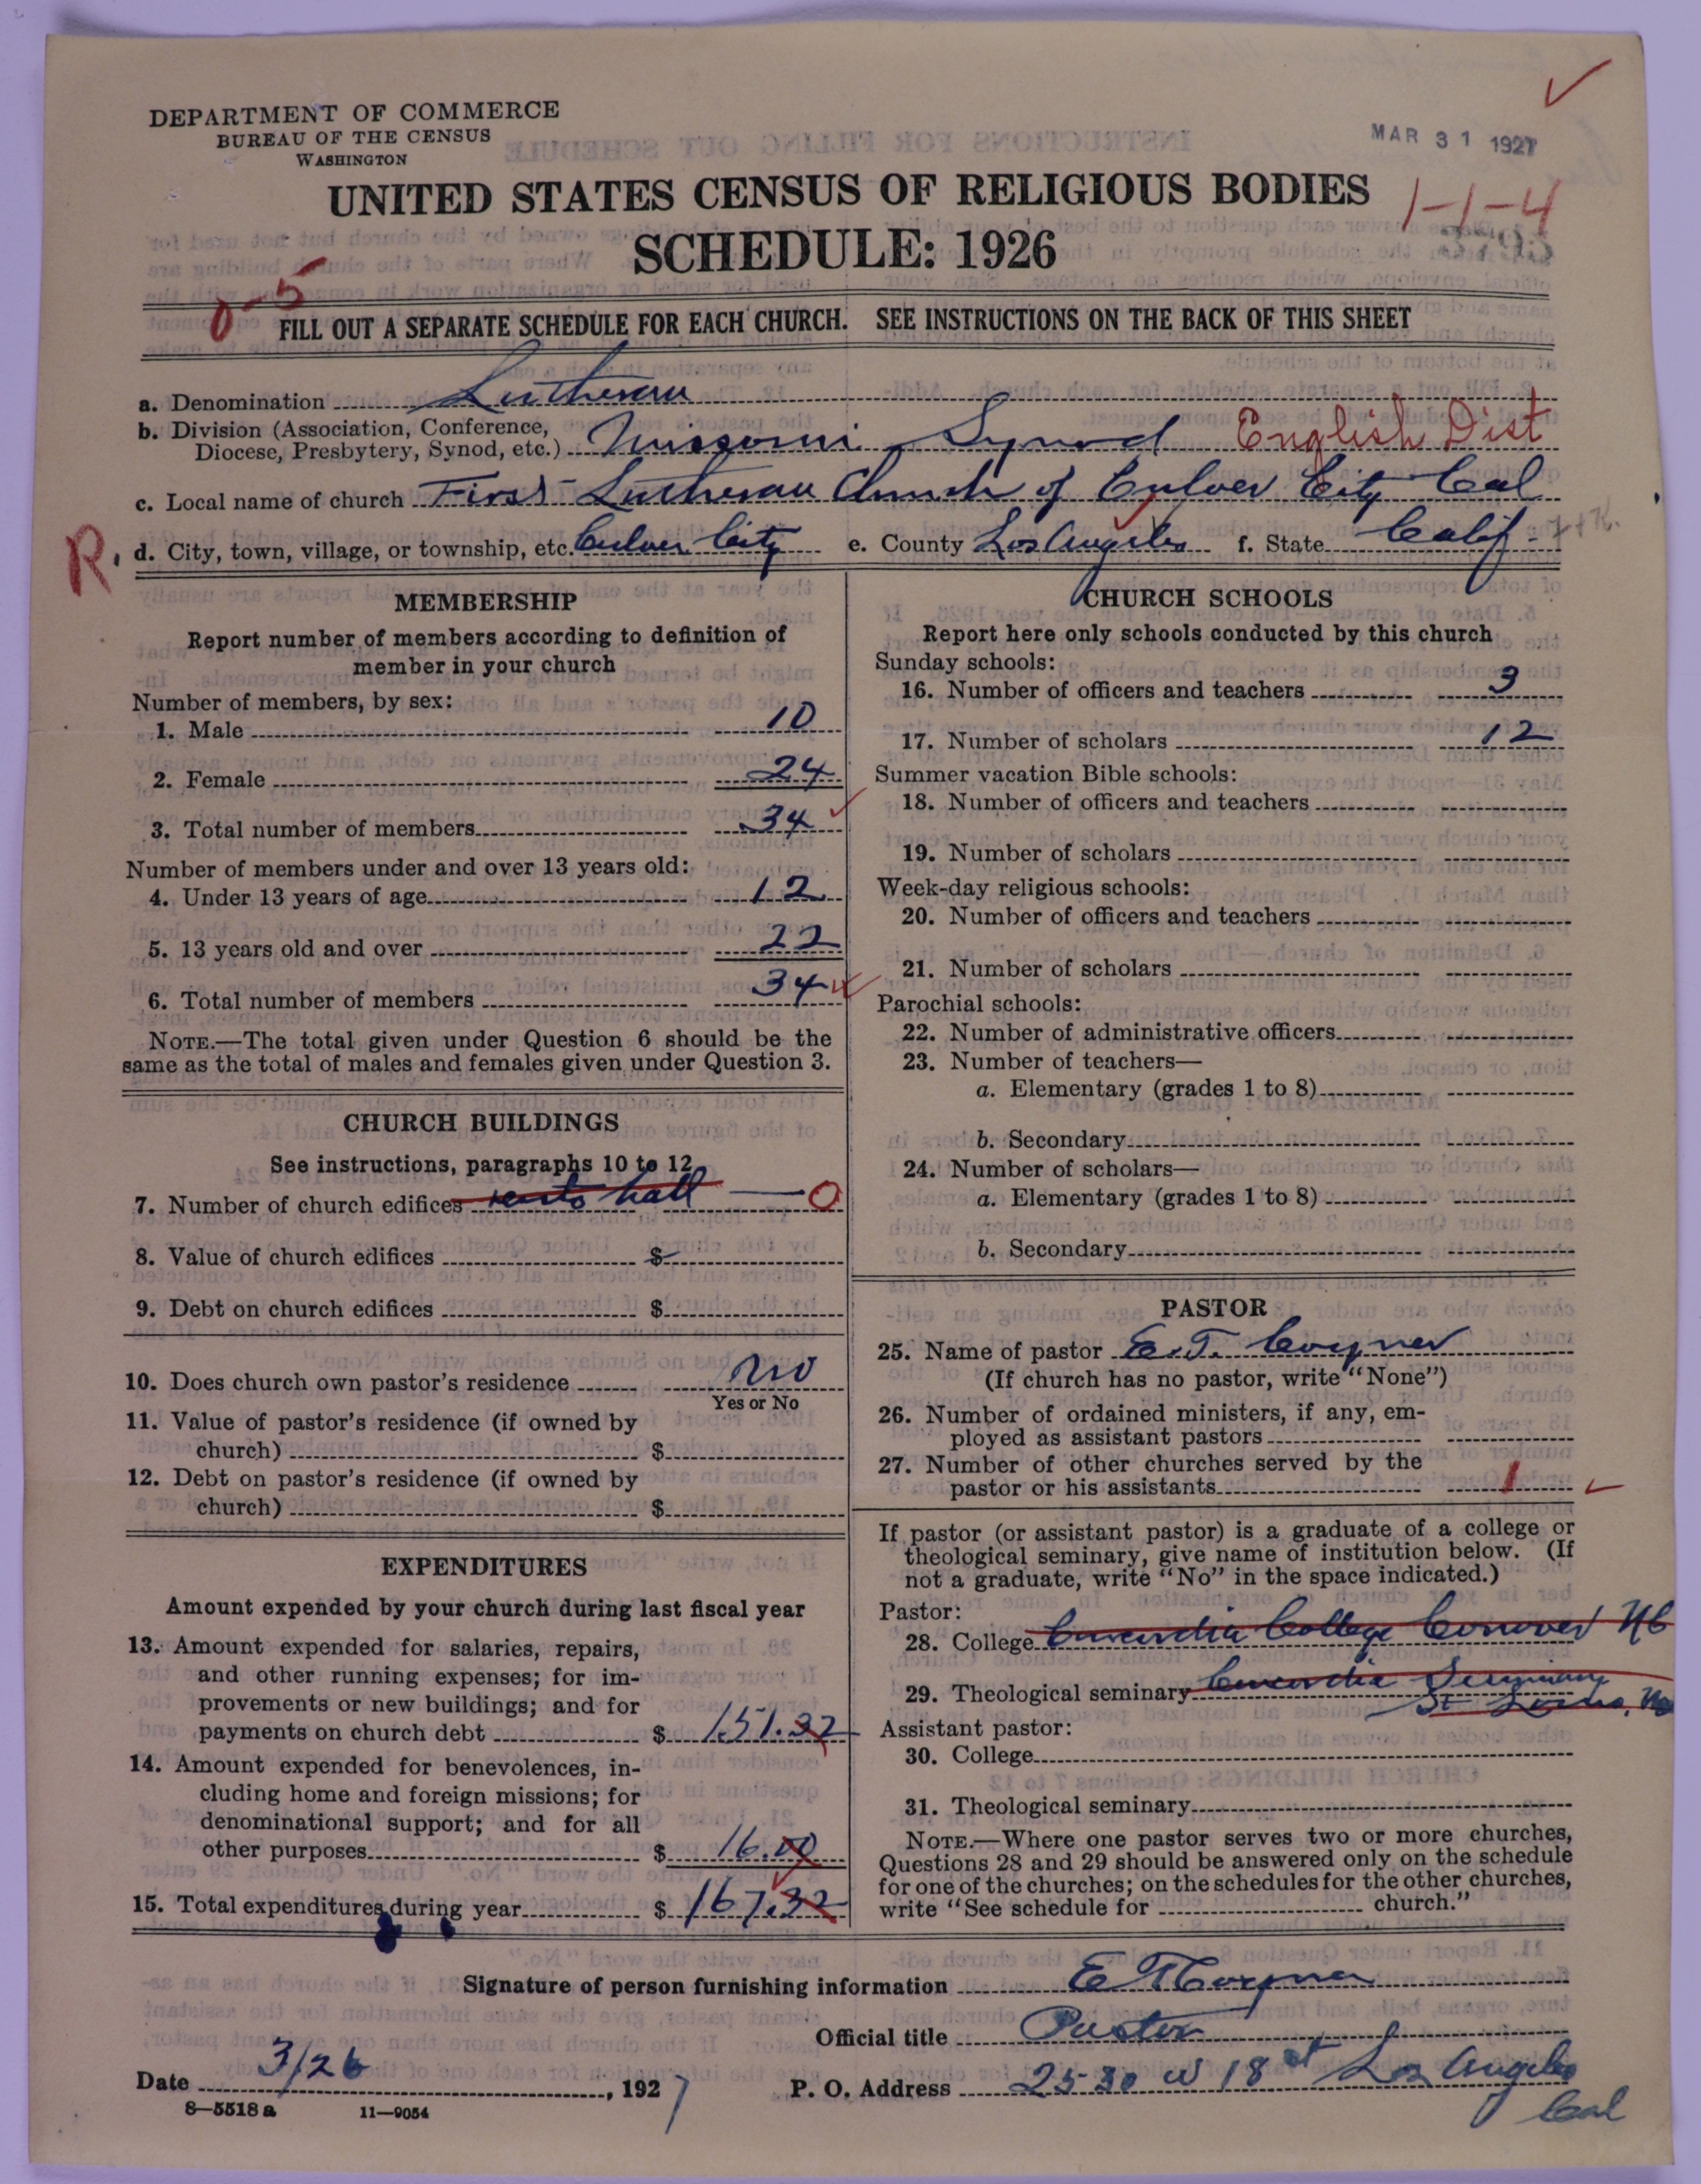 DEPARTMENT OF COMMERCE
BUREAU OF THE CENSUS
WASHINGTON
MAR 31 1927
UNITED STATES CENSUS OF RELIGIOUS BODIES
1-1-4
SCHEDULE: 1926
0-5
FILL OUT A SEPARATE SCHEDULE FOR EACH CHURCH. SEE INSTRUCTIONS ON THE BACK OF THIS SHEET
a. Denomination Lutheran
b. Division (Association, Conference,
Diocese, Presbytery, Synod, etc.) Missouri Synod English Dist
c. Local name of church First Lutheran Church of Culver City Cal
R. d. City, town, village, or township, etc. Culver City e. County Los Angeles f. State Calif.
MEMBERSHIP
Report number of members according to definition of
member in your church
Number of members, by sex:
1. Male 10
2. Female 24
3. Total number of members 34
Number of members under and over 13 years old:
4. Under 13 years of age 12
5. 13 years old and over 22
6. Total number of members 34
NOTE.—The total given under Question 6 should be the
same as the total of males and females given under Question 3.
CHURCH BUILDINGS
See instructions, paragraphs 10 to 12
7. Number of church edifices rents hall — 0
8. Value of church edifices $
9. Debt on church edifices $
10. Does church own pastor's residence no
Yes or No
11. Value of pastor's residence (if owned by
church) $
12. Debt on pastor's residence (if owned by
church) $
EXPENDITURES
Amount expended by your church during last fiscal year
13. Amount expended for salaries, repairs,
and other running expenses; for im-
provements or new buildings; and for
payments on church debt $ 151.32
14. Amount expended for benevolences, in-
cluding home and foreign missions; for
denominational support; and for all
other purposes $ 16.00
15. Total expenditures during year $ 167.32
CHURCH SCHOOLS
Report here only schools conducted by this church
Sunday schools:
16. Number of officers and teachers 3
17. Number of scholars 12
Summer vacation Bible schools:
18. Number of officers and teachers
19. Number of scholars
Week-day religious schools:
20. Number of officers and teachers
21. Number of scholars
Parochial schools:
22. Number of administrative officers
23. Number of teachers—
a. Elementary (grades 1 to 8)
b. Secondary
24. Number of scholars—
a. Elementary (grades 1 to 8)
b. Secondary
PASTOR
25. Name of pastor E. T. Coyner
(If church has no pastor, write "None")
26. Number of ordained ministers, if any, em-
ployed as assistant pastors
27. Number of other churches served by the
pastor or his assistants 1
If pastor (or assistant pastor) is a graduate of a college or
theological seminary, give name of institution below. (If
not a graduate, write "No" in the space indicated.)
Pastor:
28. College Concordia College Conover NC
29. Theological seminary Concordia Seminary
St Louis, Mo
Assistant pastor:
30. College
31. Theological seminary
NOTE.—Where one pastor serves two or more churches,
Questions 28 and 29 should be answered only on the schedule
for one of the churches; on the schedules for the other churches,
write "See schedule for church."
Signature of person furnishing information E T Coyner
Official title Pastor
Date 3/26, 1927 P. O. Address 2530 W 18 st Los Angeles
Cal
8—5518 a 11—9054